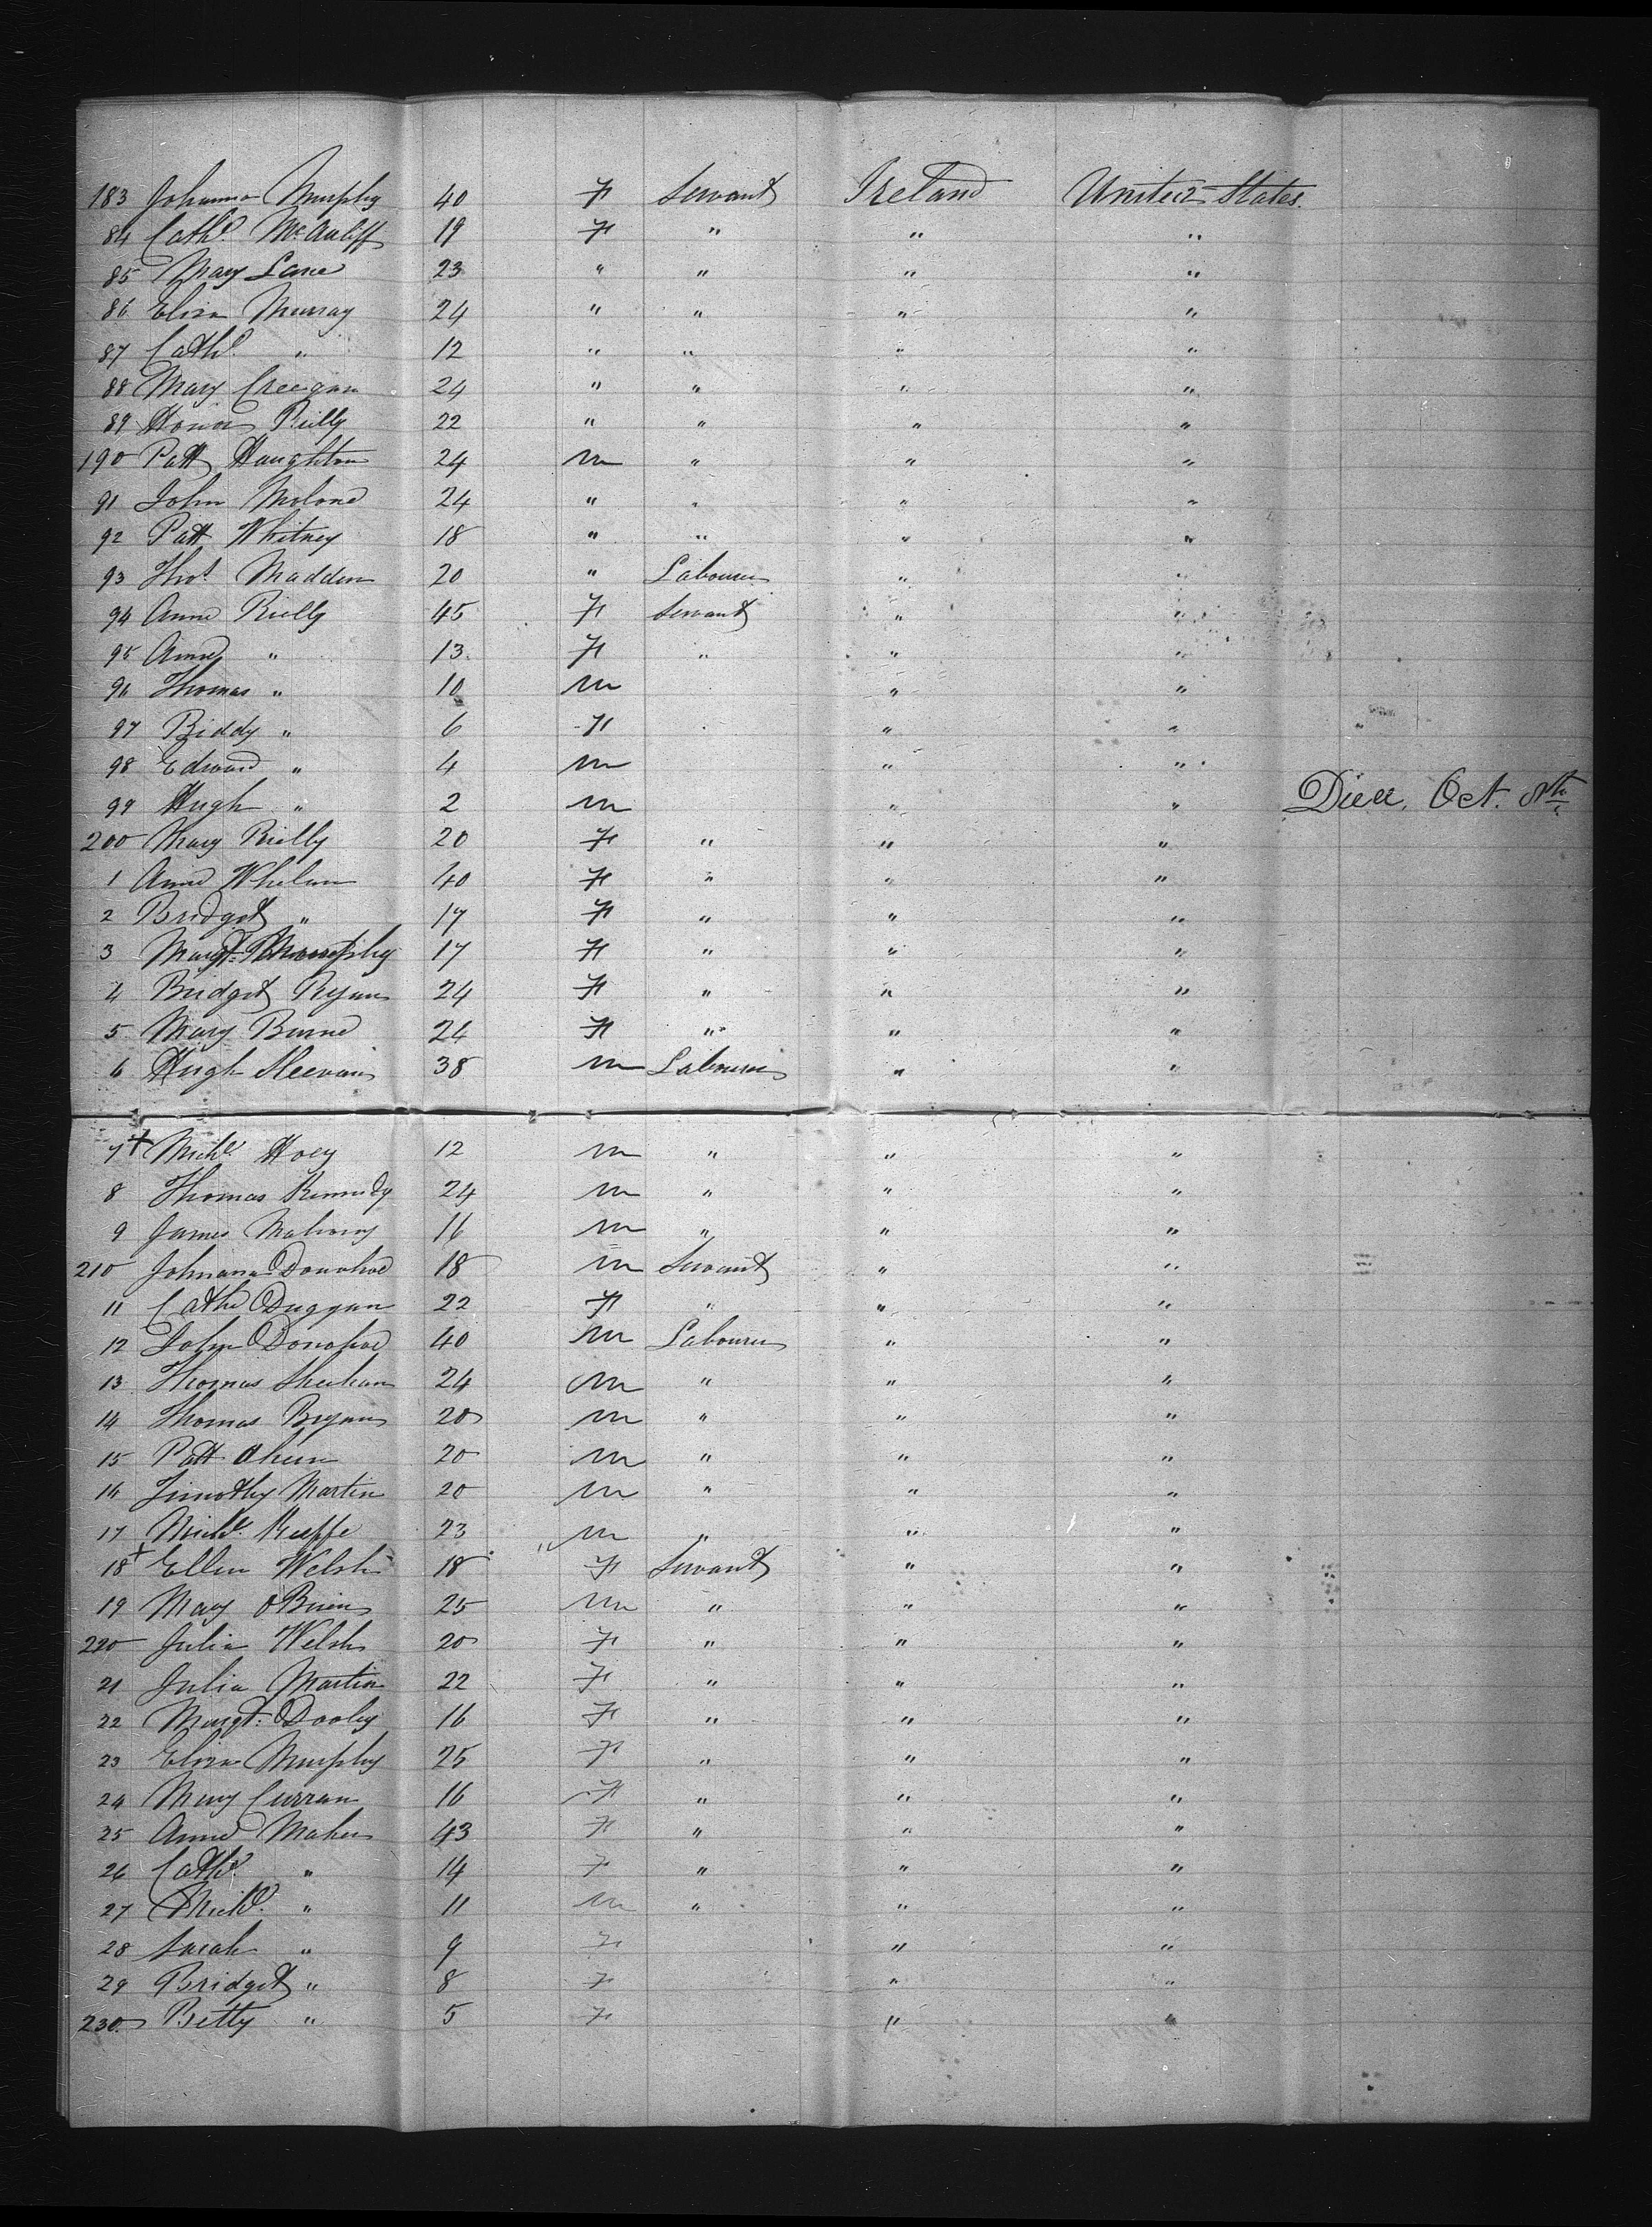 183 Johanna Murphy 40 F Servant Ireland United States.
84 Cathe. McAuliff 19 F " " "
85 Mary Lane 23 " " " "
86 Eliza Murray 24 " " " "
87 Cathe. " 12 " " " "
88 Mary Creegan 24 " " " "
89 Honor Reilly 22 " " " "
190 Patt Haughton 24 M " " "
91 John Molone 24 " " " "
92 Patt Whitney 18 " " " "
93 Thos. Madden 20 " Labourer " "
94 Anne Rielly 45 F Servant " "
95 Anne " 13 F " " "
96 Thomas " 10 M " "
97 Biddy " 6 F " "
98 Edward " 4 M " "
99 Hugh " 2 M " " Died, Oct. 8th
200 Mary Rielly 20 F " " "
1 Anne Whelan 40 F " " "
2 Bridget " 17 F " " "
3 Margt. Murphy 17 F " " "
4 Bridget Ryan 24 F " " "
5 Mary Burne 24 F " " "
6 Hugh Sleevan 38 M Labourer " "
7 + Michl. Hoey 12 M " " "
8 Thomas Kennedy 24 M " " "
9 James Mahony 16 M " " "
210 Johnana Donohoe 18 M Servant " "
11 Cathe Duggan 22 F " " "
12 John Donohoe 40 M Labourer " "
13 Thomas Sheehan 24 M " " "
14 Thomas Bryan 20 M " " "
15 Patt Ahern 20 M " " "
16 Timothy Martin 20 M " " "
17 Michl. Keeffe 23 M " " "
18 + Ellen Welsh 18 F Servant " "
19 Mary OBrien 25 M " " "
220 Julia Welsh 20 F " " "
21 Julia Martin 22 F " " "
22 Margt. Dooley 16 F " " "
23 Eliza Murphy 25 F " " "
24 Mary Curran 16 F " " "
25 Anne Maher 43 F " " "
26 Cathe. " 14 F " " "
27 Michl. " 11 M " " "
28 Sarah " 9 F " "
29 Bridget " 8 F " "
230 Betty " 5 F " "